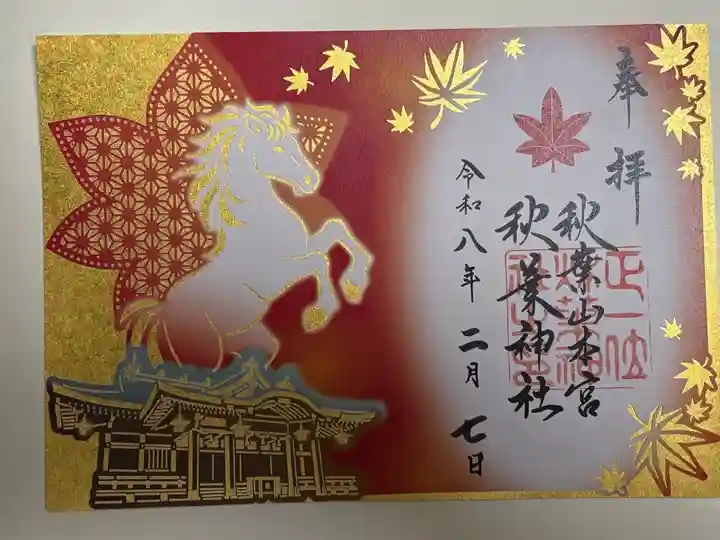 奉拝
正一位
秋葉山本宮
秋葉神社
令和八年二月七日